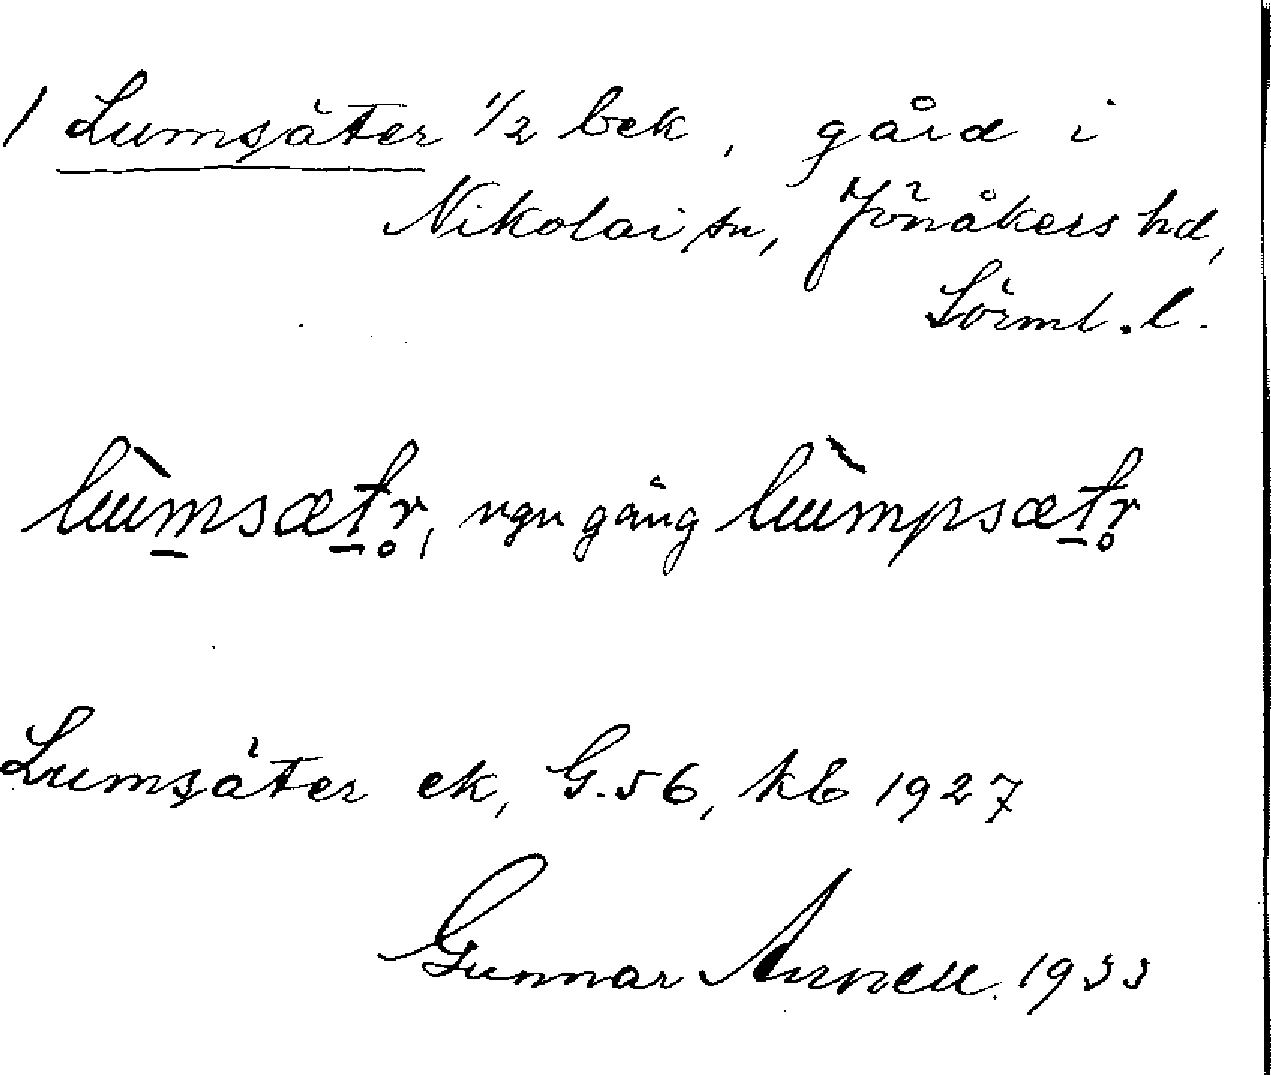 1 Lumsäter 1/2 bek, gård i
Nikolai sn, Jönåkers hd,
Sörml. l.
lùmsætr̥, ngn gång lùmpsætr̥
Lumsäter ek, G. 56, kb 1927
Gunnar Annell. 1933